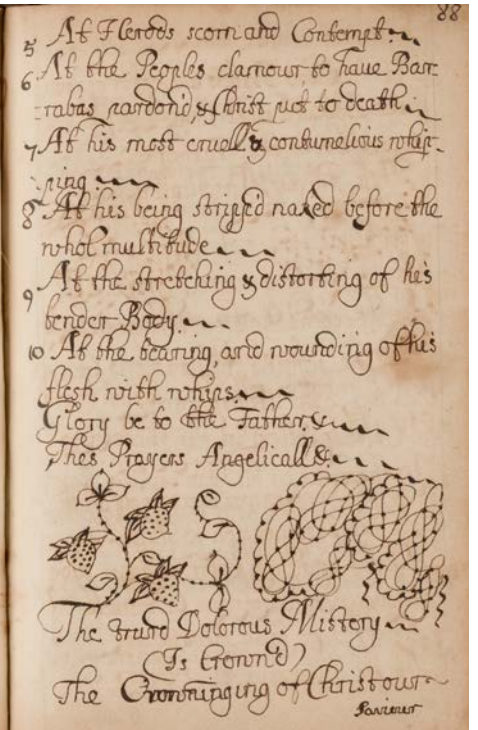 88
5 At Herods scorn and Contempt
6 At the Peoples clamour to have Bar:
:rabas pardond, & Christ put to death
7 At his most cruell & contumelious whip-
:ping
8 At his being stripped naked before the
whol multitude
9 At the stretching & distorting of his
tender Body.
10 At the tearing, and wounding of his
flesh with whips
Glory be to the Father. &
Thes Prayers Angelicall &.
The trurd Dolorous Mistery
(Is Crownd)
The Crownninging of Christ our
Saviour